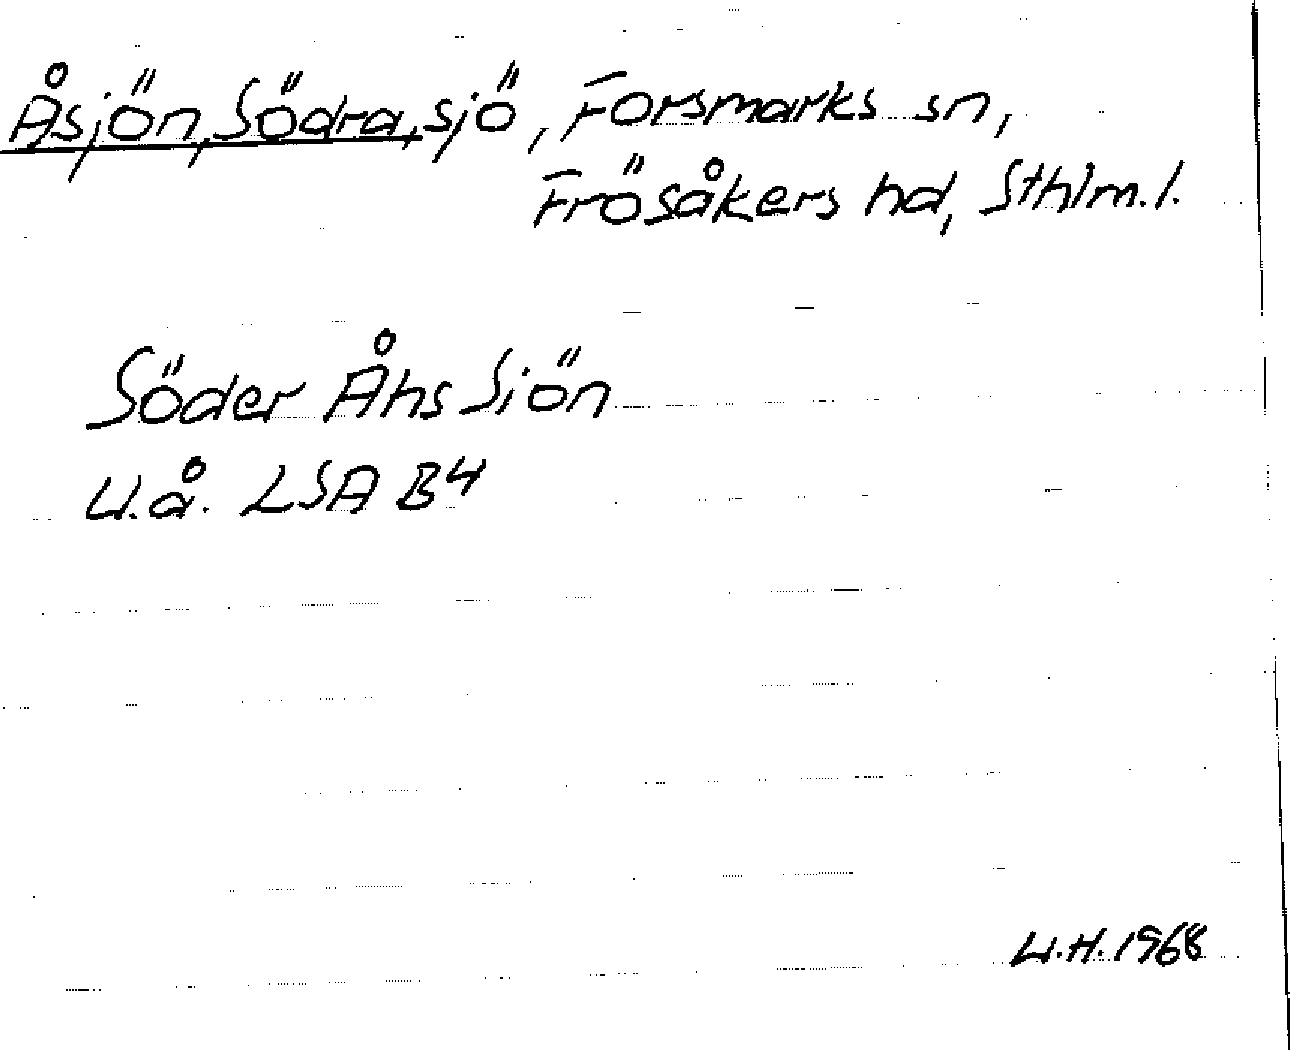 Åsjön, Södra, sjö, Forsmarks sn,
Frösåkers hd, Sthlm.l.
Söder Åhs Siön
U.å. LSA B4
U.H. 1968